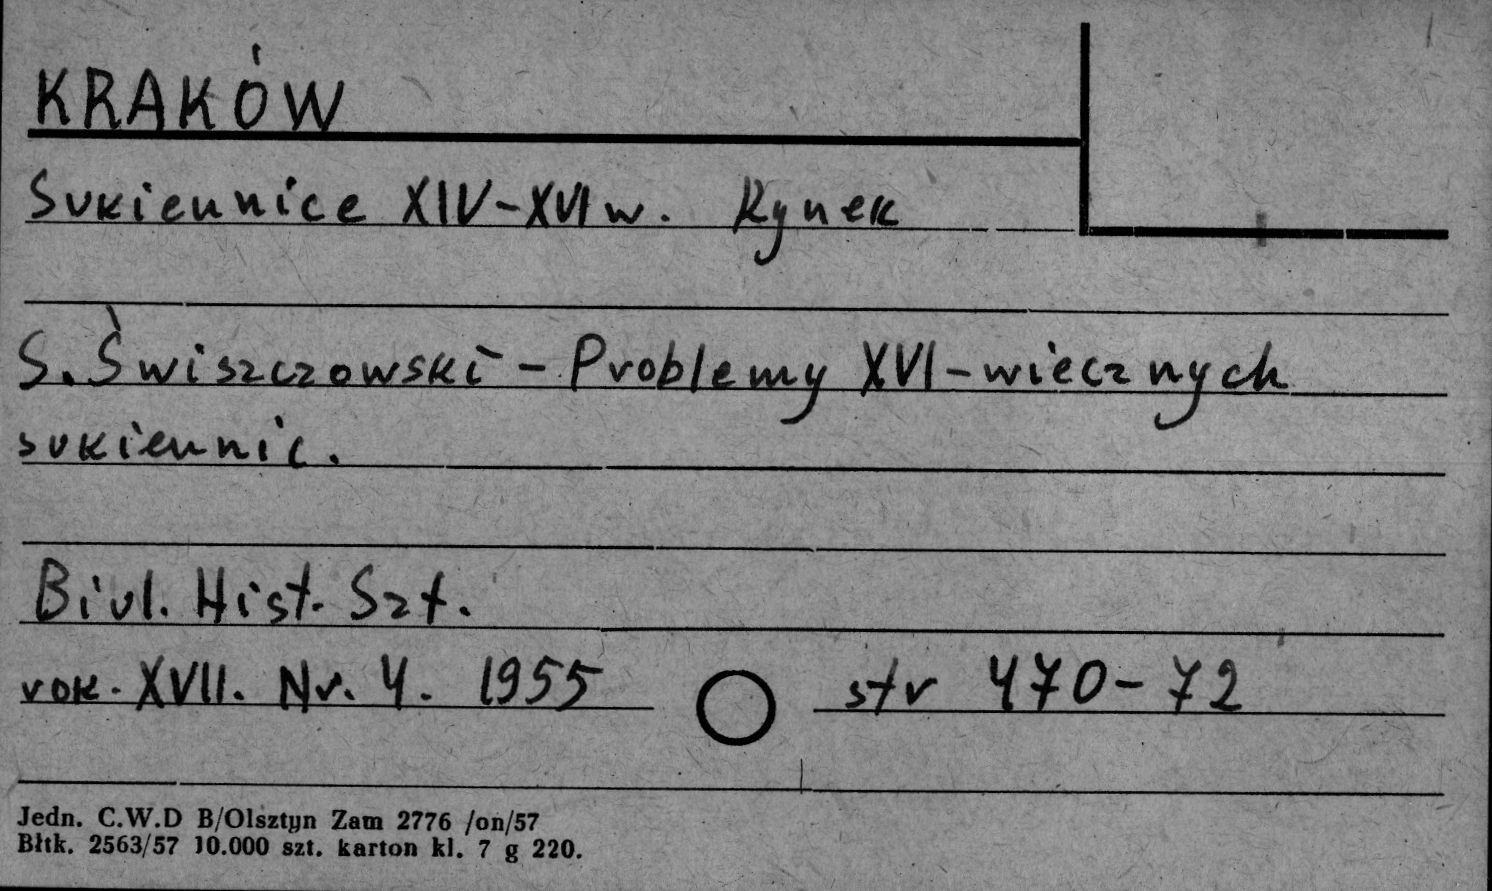 KRAKÓW
Sukiennice XIV-XVI w. Rynek
S. Świszczowski - Problemy XVI-wiecznych
sukiennic.
Biul. Hist. Szt.
rok. XVII. Nr. 4. 1955 str 470-72
Jedn. C.W.D B/Olsztyn Zam 2776 /on/57
Błtk. 2563/57 10.000 szt. karton kl. 7 g 220.